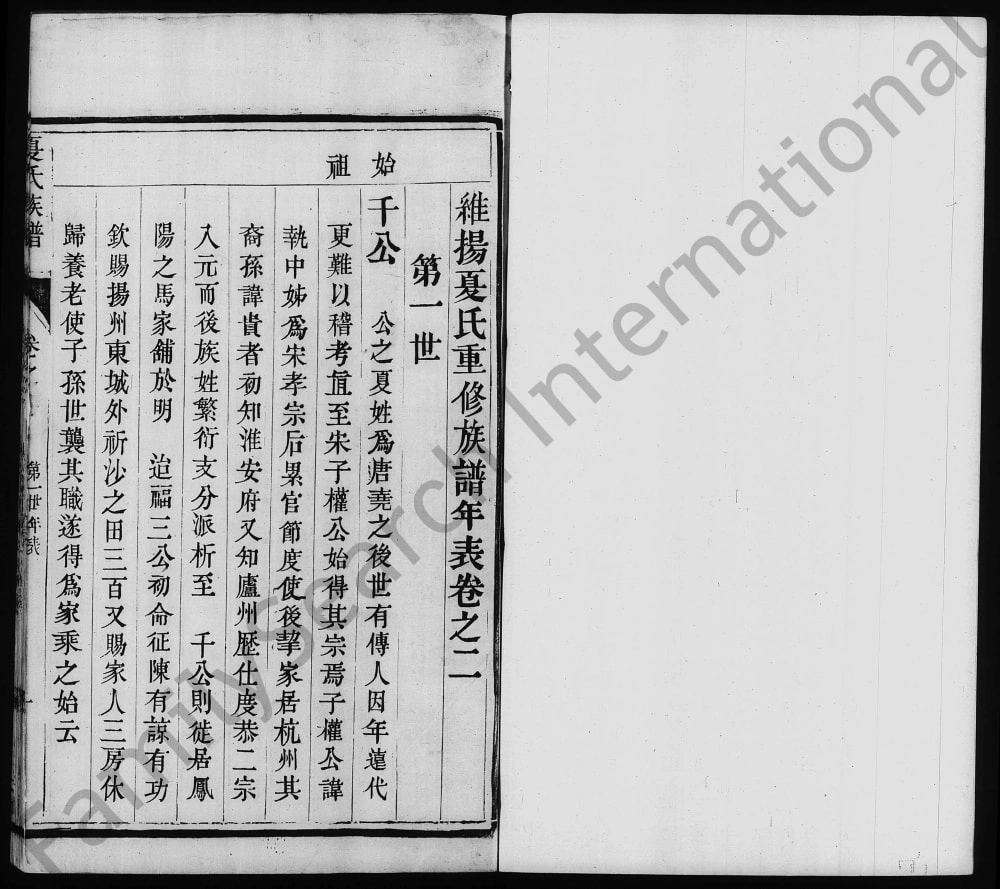 維揚夏氏重修族譜年表卷之二
第一世
始祖
千公　公之夏姓爲唐堯之後世有傳人因年遠代
更難以稽考直至宋子權公始得其宗焉子權公諱
執中姊爲宋孝宗后累官節度使後挈家居杭州其
裔孫諱貴者初知淮安府又知廬州歷仕度恭二宗
入元而後族姓繁衍支分派析至　千公則徙居鳳
陽之馬家舖於明　迨福三公初命征陳有諒有功
欽賜揚州東城外祈沙之田三百又賜家人三房休
歸養老使子孫世襲其職遂得爲家乘之始云
夏氏族譜
卷之
第一世年表
FamilySearch International